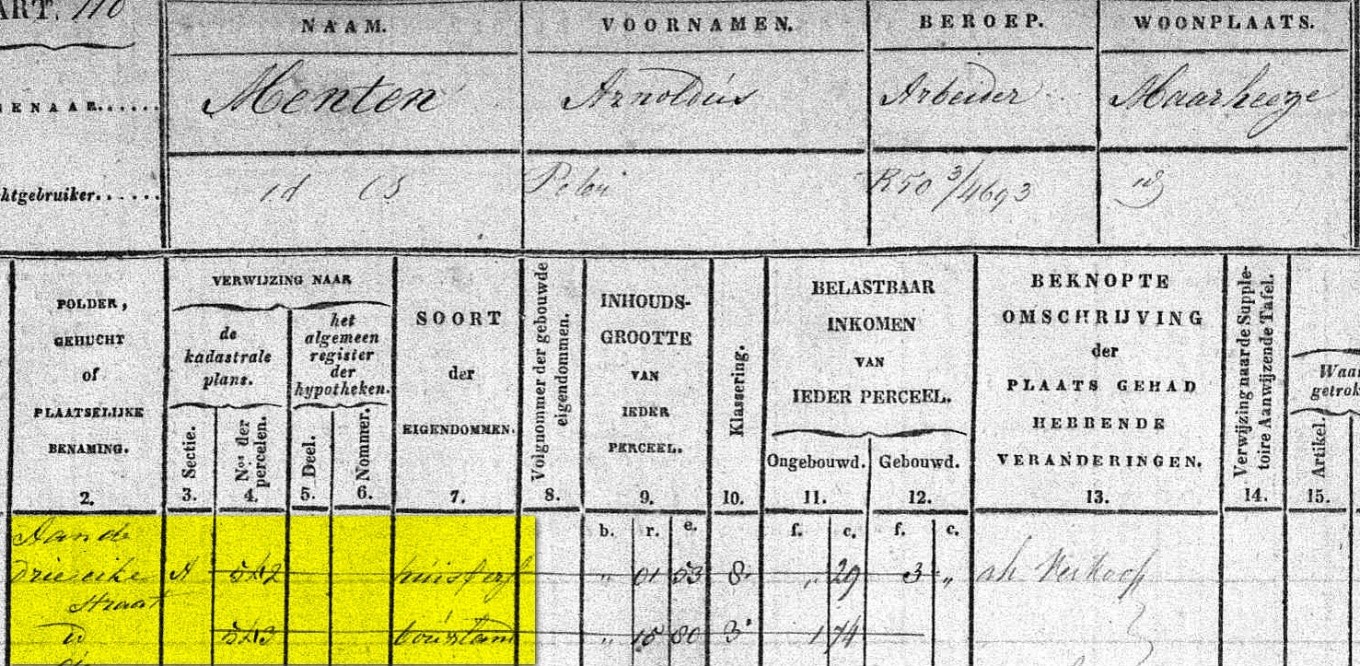 ART. 110
NAAM. VOORNAMEN. BEROEP. WOONPLAATS.
ENAAR...... Menten Arnoldus Arbeider Maarheeze
htgebruiker...... id R50 3/4693 id
POLDER,
GEHUCHT
of
PLAATSELIJKE
BENAMING.
2.
VERWIJZING NAAR
de
kadastrale
plans.
het
algemeen
register
der
hypotheken.
Sectie.
3.
Nos der
percelen.
4.
Deel.
5.
Nommer.
6.
SOORT
der
EIGENDOMMEN.
7.
Volgnommer der gebouwde
eigendommen.
8.
INHOUDS-
GROOTTE
VAN
IEDER
PERCEEL.
9.
Klassering.
10.
BELASTBAAR
INKOMEN
VAN
IEDER PERCEEL.
Ongebouwd.
11.
Gebouwd.
12.
BEKNOPTE
OMSCHRIJVING
der
PLAATS GEHAD
HEBBENDE
VERANDERINGEN.
13.
Verwijzing naar de Supple-
toire Aanwijzende Tafel.
14.
Waar
getrok
Artikel.
15.
b. r. e. f. c. f. c.
Aan de
drie eike A 542 huis & erf " 01 53 8 " 29 3 " Verkoop
straat
id 543 bouwland " 15 80 3 1 74